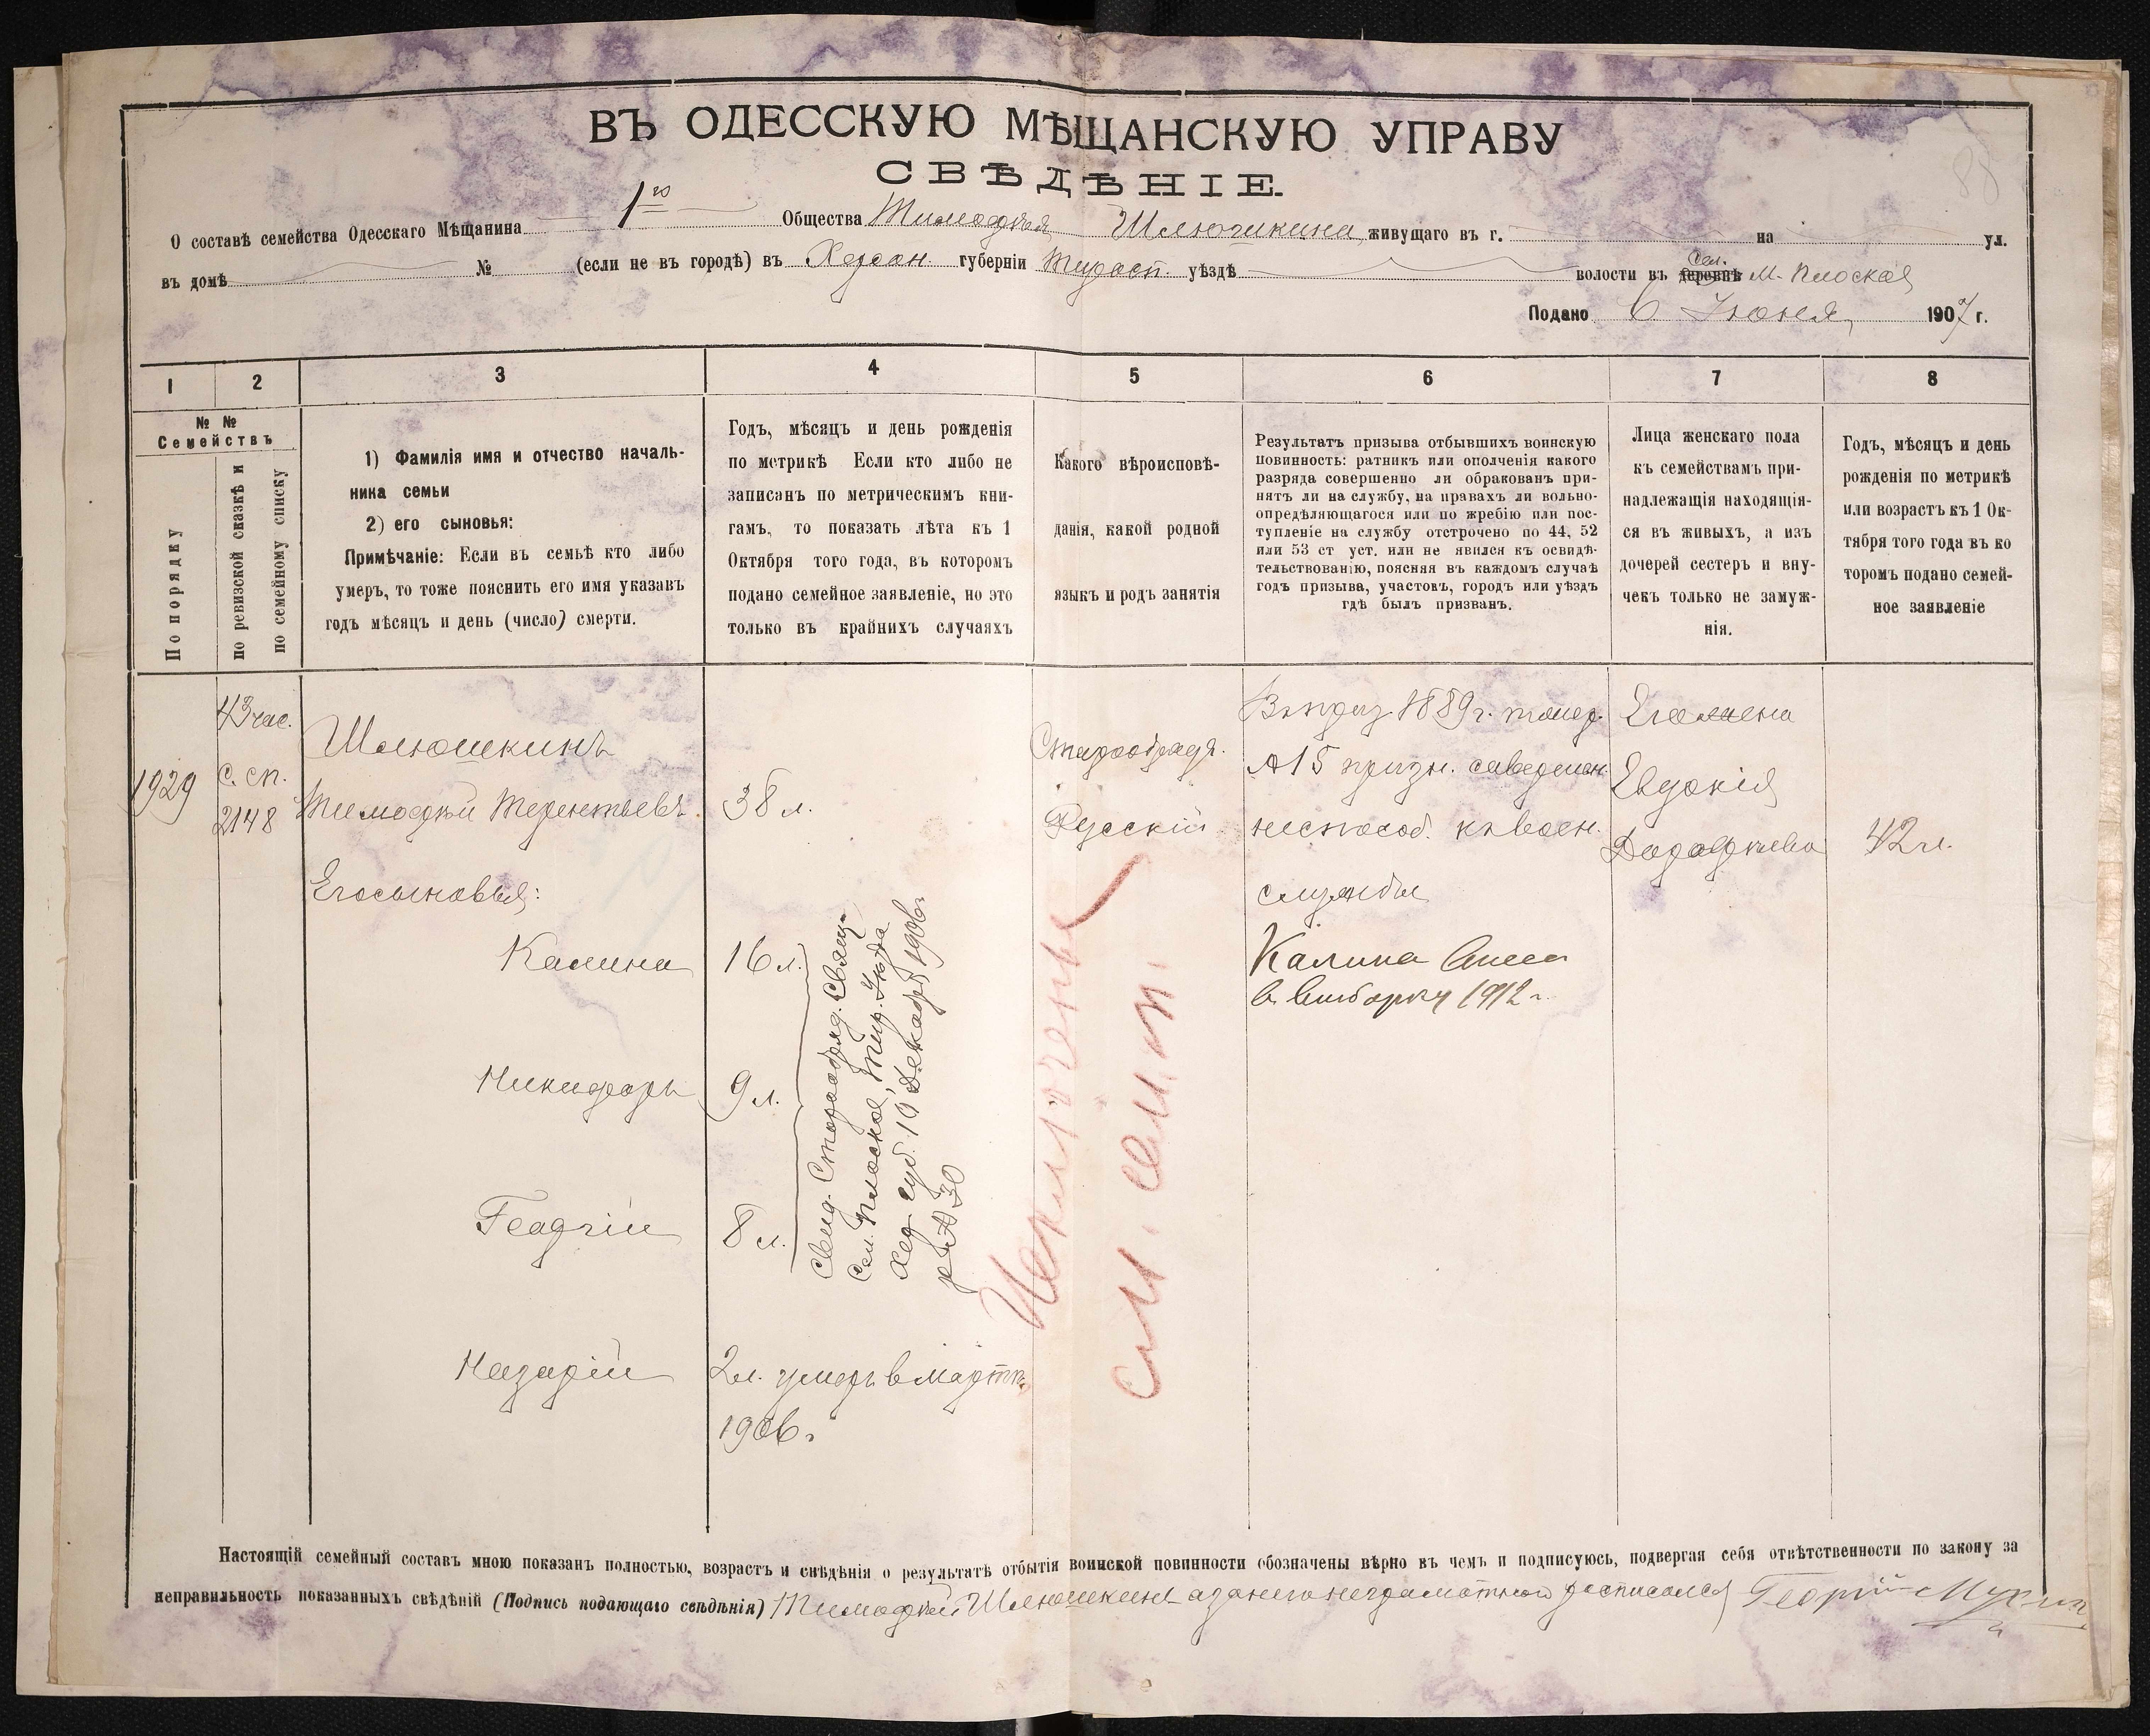 ВЪ ОДЕССКУЮ МѢЩАНСКУЮ УПРАВУ
СВѢДѢНІЕ.
О составѣ семейства Одесскаго Мѣщанина 1го Общества Тимофѣя Шлюшкина живущаго въ г. на ул.
въ домѣ № (если не въ городѣ) въ Херсон. губерніи Тирасп. уѣздѣ волости въ деревнѣ Сел. М. Плоская
Подано 6 Іюня 1907 г.
1 2 3 4 5 6 7 8
№ №
Семействъ
По порядку
по ревизской сказкѣ и
по семейному списку
1) Фамилія имя и отчество началь-
ника семьи
2) его сыновья:
Примѣчаніе: Если въ семьѣ кто либо
умеръ, то тоже пояснить его имя указавъ
годъ мѣсяцъ и день (число) смерти.
Годъ, мѣсяцъ и день рожденія
по метрикѣ Если кто либо не
записанъ по метрическимъ кни-
гамъ, то показать лѣта къ 1
Октября того года, въ которомъ
подано семейное заявленіе, но это
только въ крайнихъ случаяхъ
Какого вѣроисповѣ-
данія, какой родной
языкъ и родъ занятія
Результатъ призыва отбывшихъ воинскую
повинность: ратникъ или ополченія какого
разряда совершенно ли обракованъ при-
нятъ ли на службу, на правахъ ли вольно-
опредѣляющагося или по жребію или пос-
тупленіе на службу отстрочено по 44, 52
или 53 ст уст. или не явился къ освидѣ-
тельствованію, поясняя въ каждомъ случаѣ
годъ призыва, участокъ, городъ или уѣздъ
гдѣ былъ призванъ.
Лица женскаго пола
къ семействамъ при-
надлежащія находящія-
ся въ живыхъ, а изъ
дочерей сестеръ и вну-
чекъ только не замуж-
нія.
Годъ, мѣсяцъ и день
рожденія по метрикѣ
или возрастъ къ 1 Ок-
тября того года въ ко
торомъ подано семей-
ное заявленіе
1929
43 час.
с. сп.
2148
Шлюшкинъ
Тимофѣй Терентьевъ
Его сыновья:
Калина
Никифоръ
Георгій
Назарій
38 л.
16 л.
9 л.
8 л.
2 л. умеръ въ мартѣ
1906 г
Свид. Старообряд. Свящ.
Сел. Плоское, Тир. Уѣзда
Хер. губ. 19 Декабря 1906 г
за № 30
Старообряд.
Русскій
Исключены
см. сем. п.
Въ приз. 1889 г. по жер.
№ 15 призн. совершен.
неспособ. къ воен.
службы
Калина Внесен
в выборку 1912 г.
Его жена
Евдокія
Дорофѣева
42 л.
Настоящій семейный составъ мною показанъ полностью, возрастъ и свѣдѣнія о результатѣ отбытія воинской повинности обозначены вѣрно въ чемъ и подписуюсь, подвергая себя отвѣтственности по закону за
неправильность показанныхъ свѣдѣній (Подпись подающаго свѣдѣнія) Тимофѣй Шлюшкинъ а за него неграмотнаго росписался Георгій